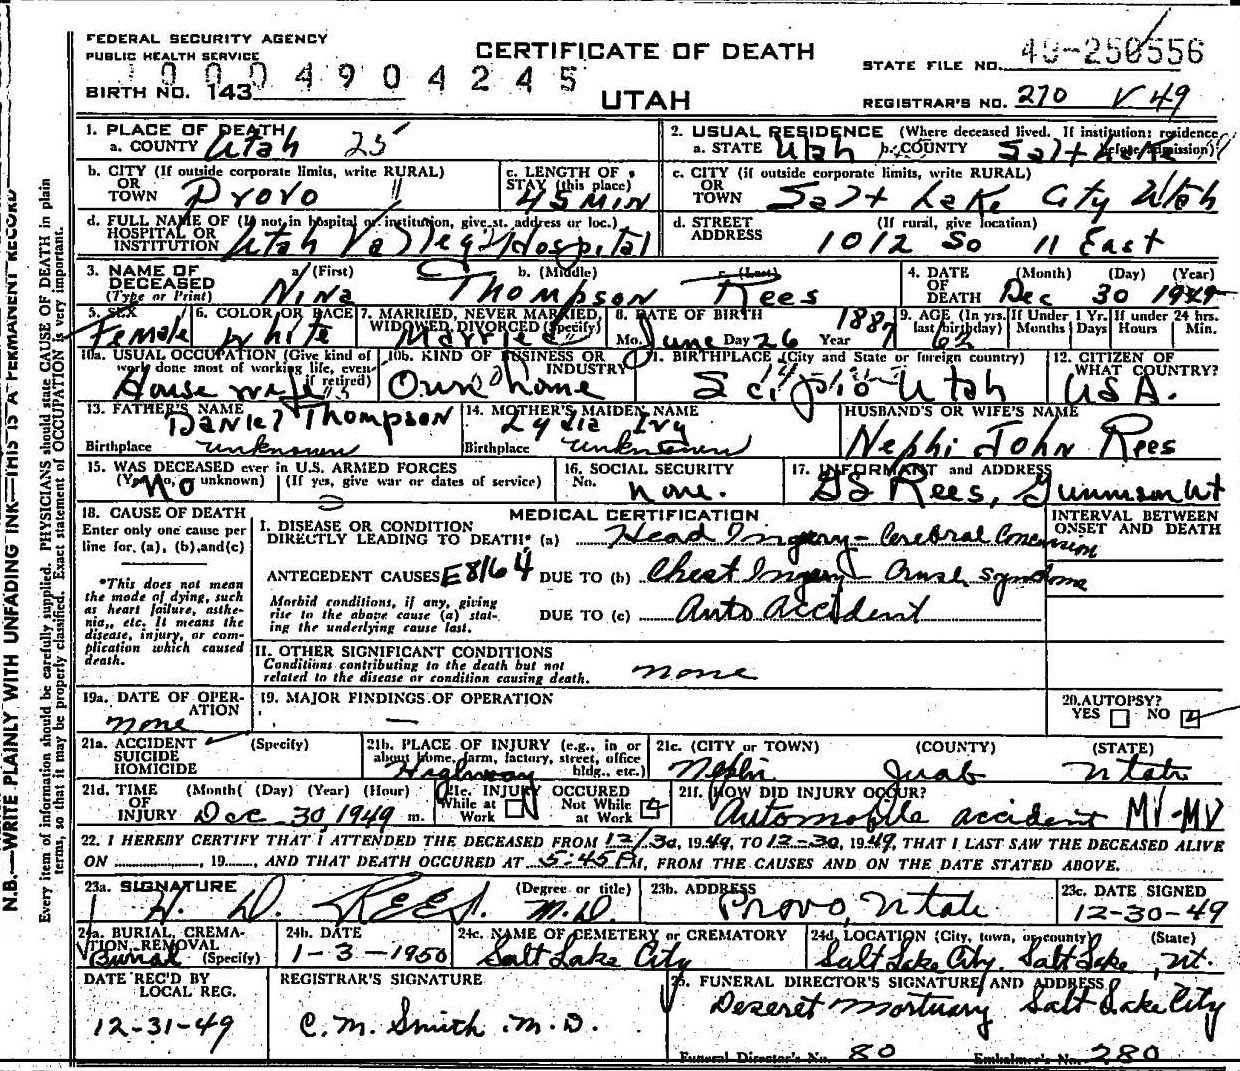 FEDERAL SECURITY AGENCY
PUBLIC HEALTH SERVICE
CERTIFICATE OF DEATH
UTAH
STATE FILE NO. 49-250556
0004904245
BIRTH NO. 143
REGISTRAR'S NO. 270 V 49
1. PLACE OF DEATH
a. COUNTY Utah 25
2. USUAL RESIDENCE (Where deceased lived. If institution: residence before admission)
a. STATE Utah b. COUNTY Salt Lake
b. CITY (If outside corporate limits, write RURAL)
OR
TOWN Provo
c. LENGTH OF
STAY (this place)
45 Min
c. CITY (If outside corporate limits, write RURAL)
OR
TOWN Salt Lake City Utah
d. FULL NAME OF (If not in hospital or institution, give st. address or loc.)
HOSPITAL OR
INSTITUTION Utah Valley Hospital
d. STREET (If rural, give location)
ADDRESS 1012 So 11 East
3. NAME OF DECEASED
(Type or Print)
a. (First) b. (Middle) c. (Last)
Nina Thompson Rees
4. DATE OF DEATH (Month) (Day) (Year)
Dec 30 1949
5. SEX
Female
6. COLOR OR RACE
White
7. MARRIED, NEVER MARRIED,
WIDOWED, DIVORCED (Specify)
Married
8. DATE OF BIRTH
Mo. June Day 26 Year 1887
9. AGE (In yrs. last birthday)
62
If Under 1 Yr.
Months Days
If under 24 hrs.
Hours Min.
10a. USUAL OCCUPATION (Give kind of
work done most of working life, even
if retired)
House wife
10b. KIND OF BUSINESS OR
INDUSTRY
Own home
11. BIRTHPLACE (City and State or foreign country)
Scipio Utah
12. CITIZEN OF
WHAT COUNTRY?
USA.
13. FATHER'S NAME
Daniel Thompson
Birthplace unknown
14. MOTHER'S MAIDEN NAME
Lydia Ivy
Birthplace unknown
HUSBAND'S OR WIFE'S NAME
Nephi John Rees
15. WAS DECEASED ever in U.S. ARMED FORCES
(Yes, no, unknown) (If yes, give war or dates of service)
No
16. SOCIAL SECURITY
No. none.
17. INFORMANT and ADDRESS
GS Rees, Gunnison Ut
18. CAUSE OF DEATH
Enter only one cause per
line for (a), (b), and (c)
*This does not mean
the mode of dying, such
as heart failure, asthe-
nia, etc. It means the
disease, injury, or com-
plication which caused
death.
MEDICAL CERTIFICATION
INTERVAL BETWEEN
ONSET AND DEATH
I. DISEASE OR CONDITION
DIRECTLY LEADING TO DEATH* (a) Head Injury - Cerebral Concussion
ANTECEDENT CAUSES E8164 DUE TO (b) Chest Injury - Crush Syndrome
Morbid conditions, if any, giving
rise to the above cause (a) stat-
ing the underlying cause last.
DUE TO (c) Auto accident
II. OTHER SIGNIFICANT CONDITIONS
Conditions contributing to the death but not
related to the disease or condition causing death.
none
19a. DATE OF OPER-
ATION
none
19. MAJOR FINDINGS OF OPERATION
—
20. AUTOPSY?
YES NO
21a. ACCIDENT (Specify)
SUICIDE
HOMICIDE
21b. PLACE OF INJURY (e.g., in or
about home, farm, factory, street, office
bldg., etc.)
Highway
21c. (CITY or TOWN) (COUNTY) (STATE)
Nephi Juab Utah
21d. TIME (Month) (Day) (Year) (Hour)
OF
INJURY Dec 30, 1949 m.
21e. INJURY OCCURED
While at Work Not While at Work
21f. HOW DID INJURY OCCUR?
Automobile accident MV-MV
22. I HEREBY CERTIFY THAT I ATTENDED THE DECEASED FROM 12/30, 1949, TO 12-30, 1949, THAT I LAST SAW THE DECEASED ALIVE
ON , 19 , AND THAT DEATH OCCURED AT 5:45 P M, FROM THE CAUSES AND ON THE DATE STATED ABOVE.
23a. SIGNATURE (Degree or title)
H. D. Rees. M.D.
23b. ADDRESS
Provo, Utah
23c. DATE SIGNED
12-30-49
24a. BURIAL, CREMA-
TION, REMOVAL
(Specify)
Burial
24b. DATE
1-3-1950
24c. NAME OF CEMETERY OR CREMATORY
Salt Lake City
24d. LOCATION (City, town, or county) (State)
Salt Lake City, Salt Lake, Ut.
DATE REC'D BY
LOCAL REG.
12-31-49
REGISTRAR'S SIGNATURE
C. M. Smith M.D.
25. FUNERAL DIRECTOR'S SIGNATURE AND ADDRESS
Deseret Mortuary Salt Lake City
Funeral Director's No. 80 Embalmer's No. 280
N.B.—WRITE PLAINLY WITH UNFADING INK—THIS IS A PERMANENT RECORD
Every item of information should be carefully supplied. PHYSICIANS should state CAUSE OF DEATH in plain
terms, so that it may be properly classified. Exact statement of OCCUPATION is very important.